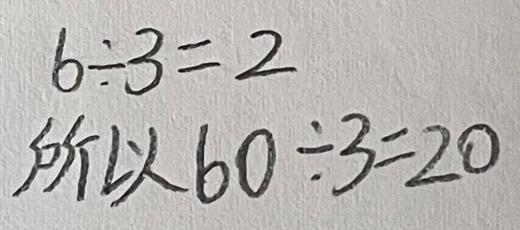 6÷3=2
所以60÷3=20